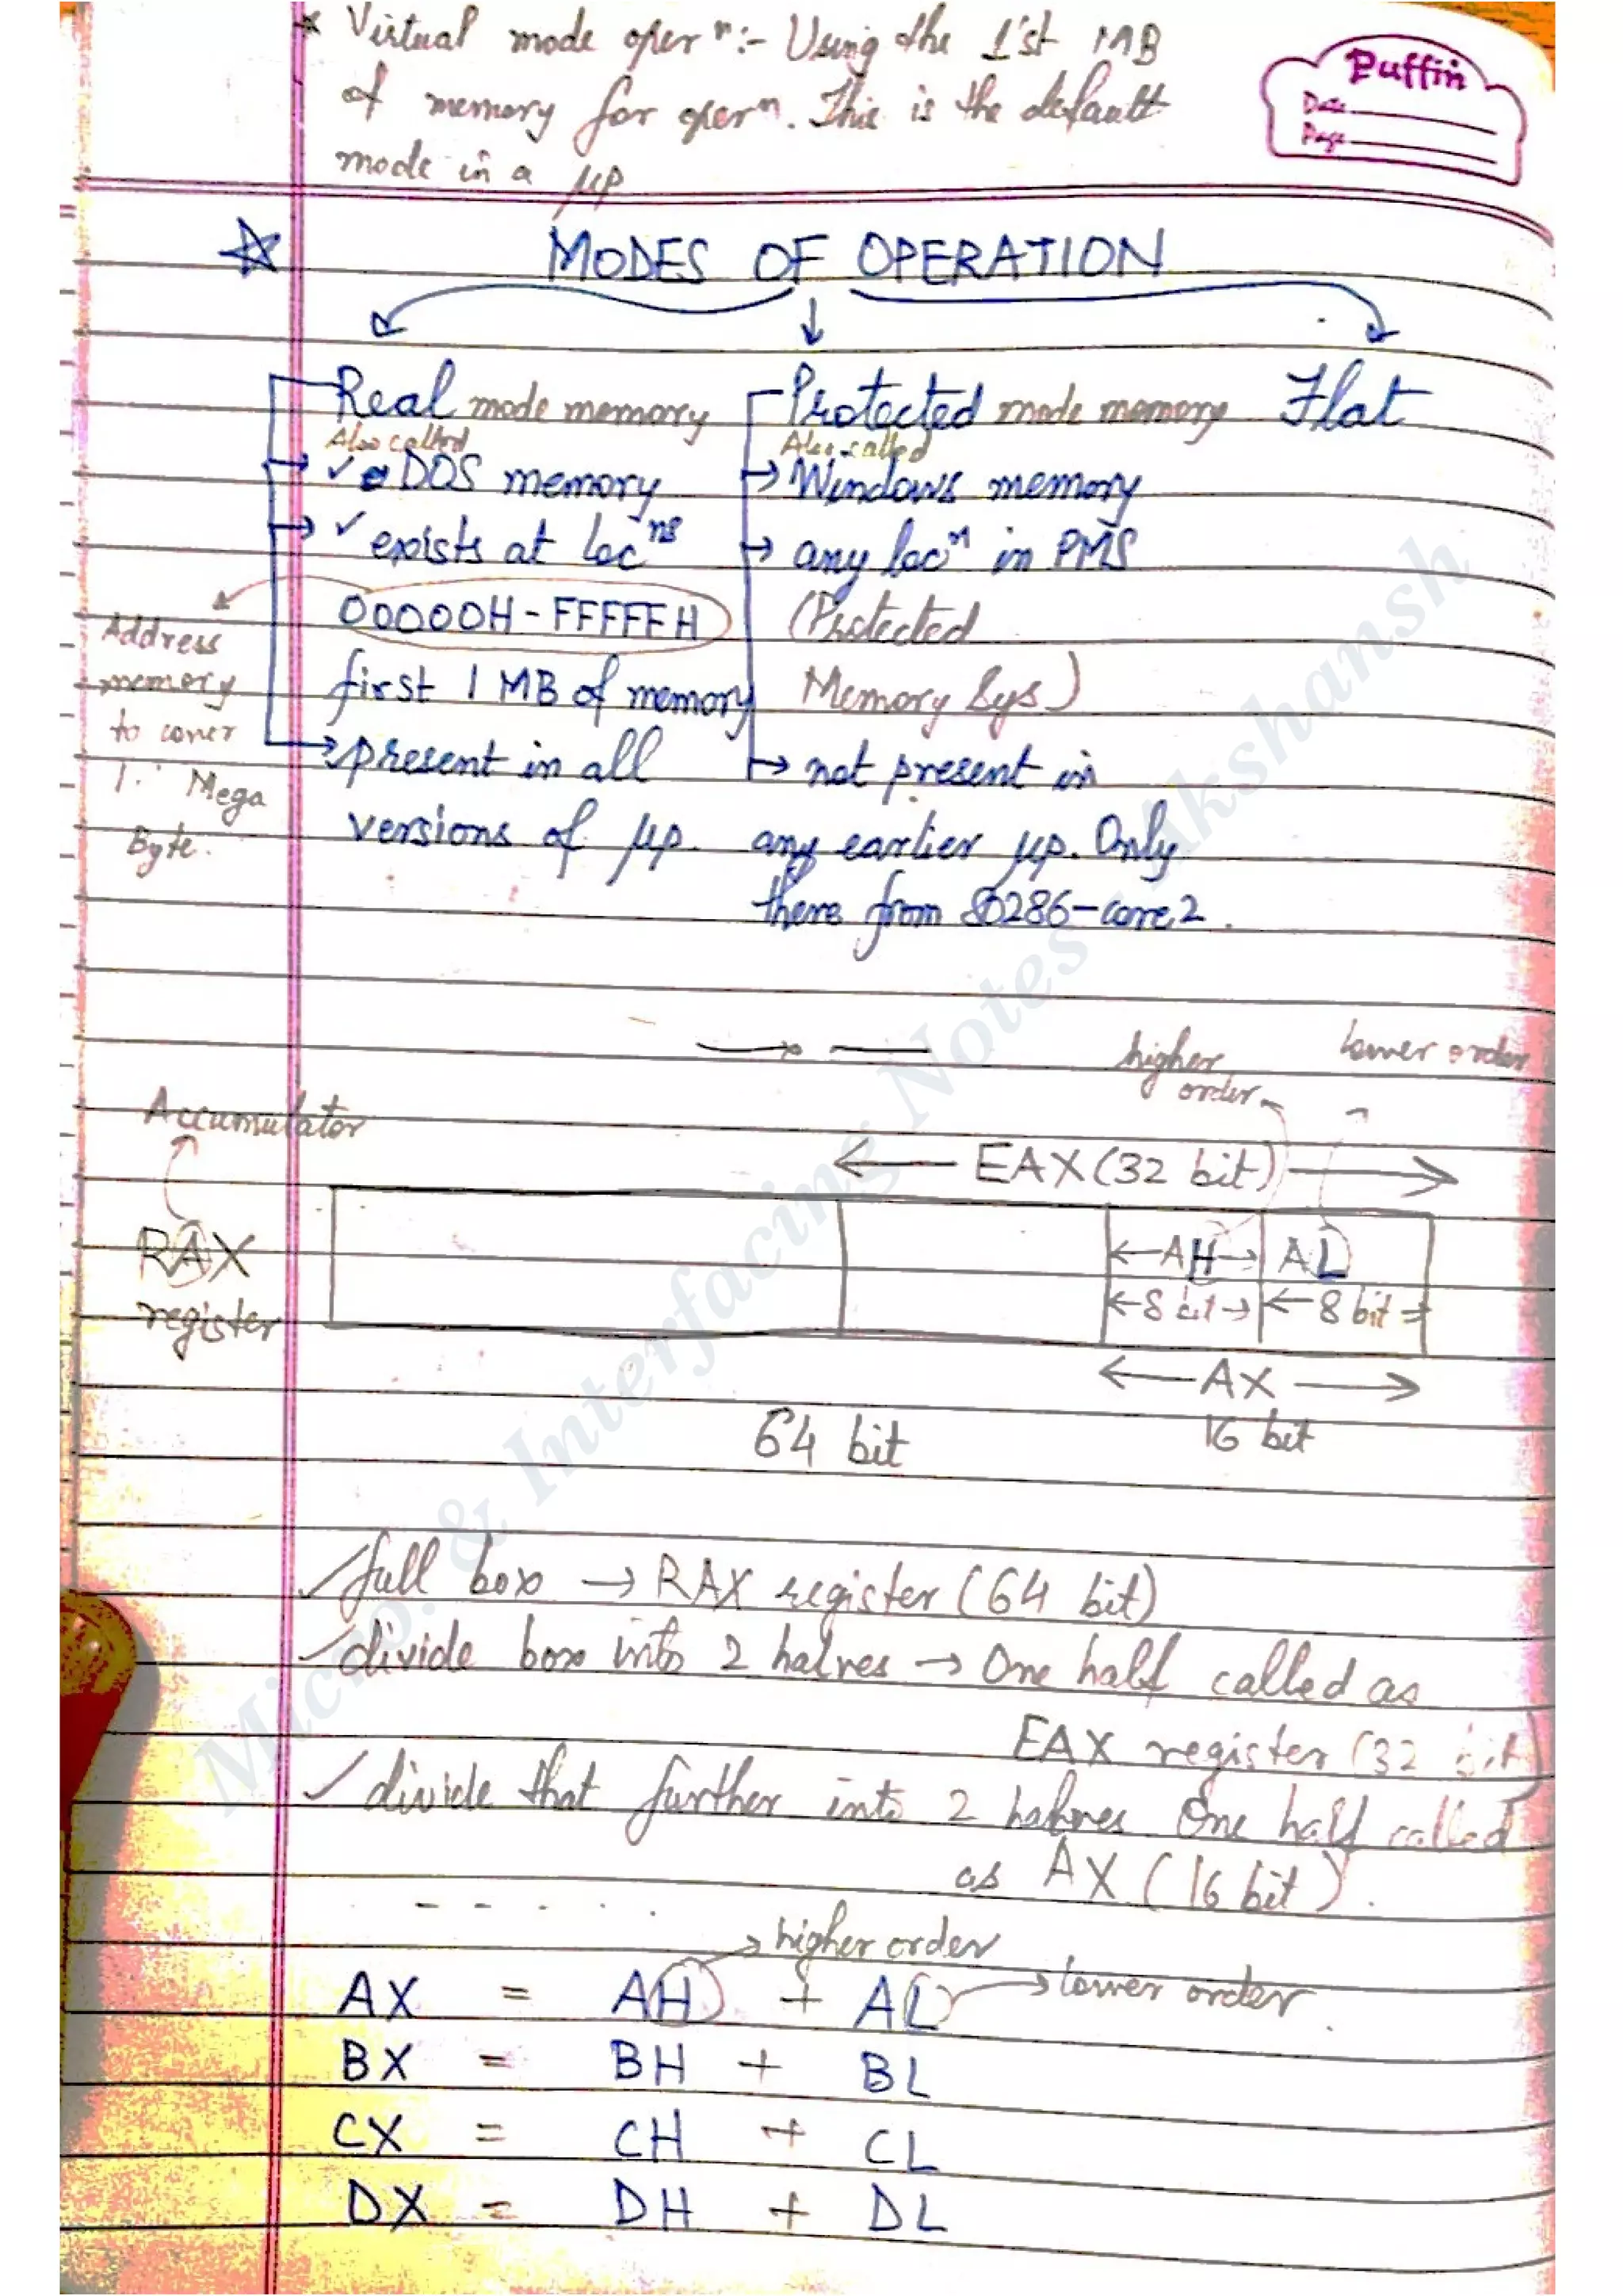 * Virtual mode operⁿ:- Using the 1'st MB
of memory for operⁿ. This is the default
mode in a μp
Puffin
Date
Page
☆ MODES OF OPERATION
Real mode memory
Also called
→ ✓ DOS memory
→ ✓ exists at locⁿˢ
00000H - FFFFFH
first 1 MB of memory
→ present in all
versions of μp.
Address
memory
to cover
1 Mega
Byte.
Protected mode memory
Also called
→ Windows memory
→ any locⁿ in PMS
(Protected
Memory Sys)
→ not present in
any earlier μp. Only
there from 80286-core2.
Flat
higher
order
lower order
Accumulator
← EAX (32 bit) →
RAX
register
← AH → AL
← 8 bit → ← 8 bit →
← AX →
16 bit
64 bit
✓ full box → RAX register (64 bit)
✓ divide box into 2 halves → One half called as
EAX register (32 bit)
✓ divide that further into 2 halves One half called
as AX (16 bit).
- - - - . .
→ higher order
AX = AH + AL → lower order.
BX = BH + BL
CX = CH + CL
DX = DH + DL
Micro. & Interfacing Notes - Akshansh